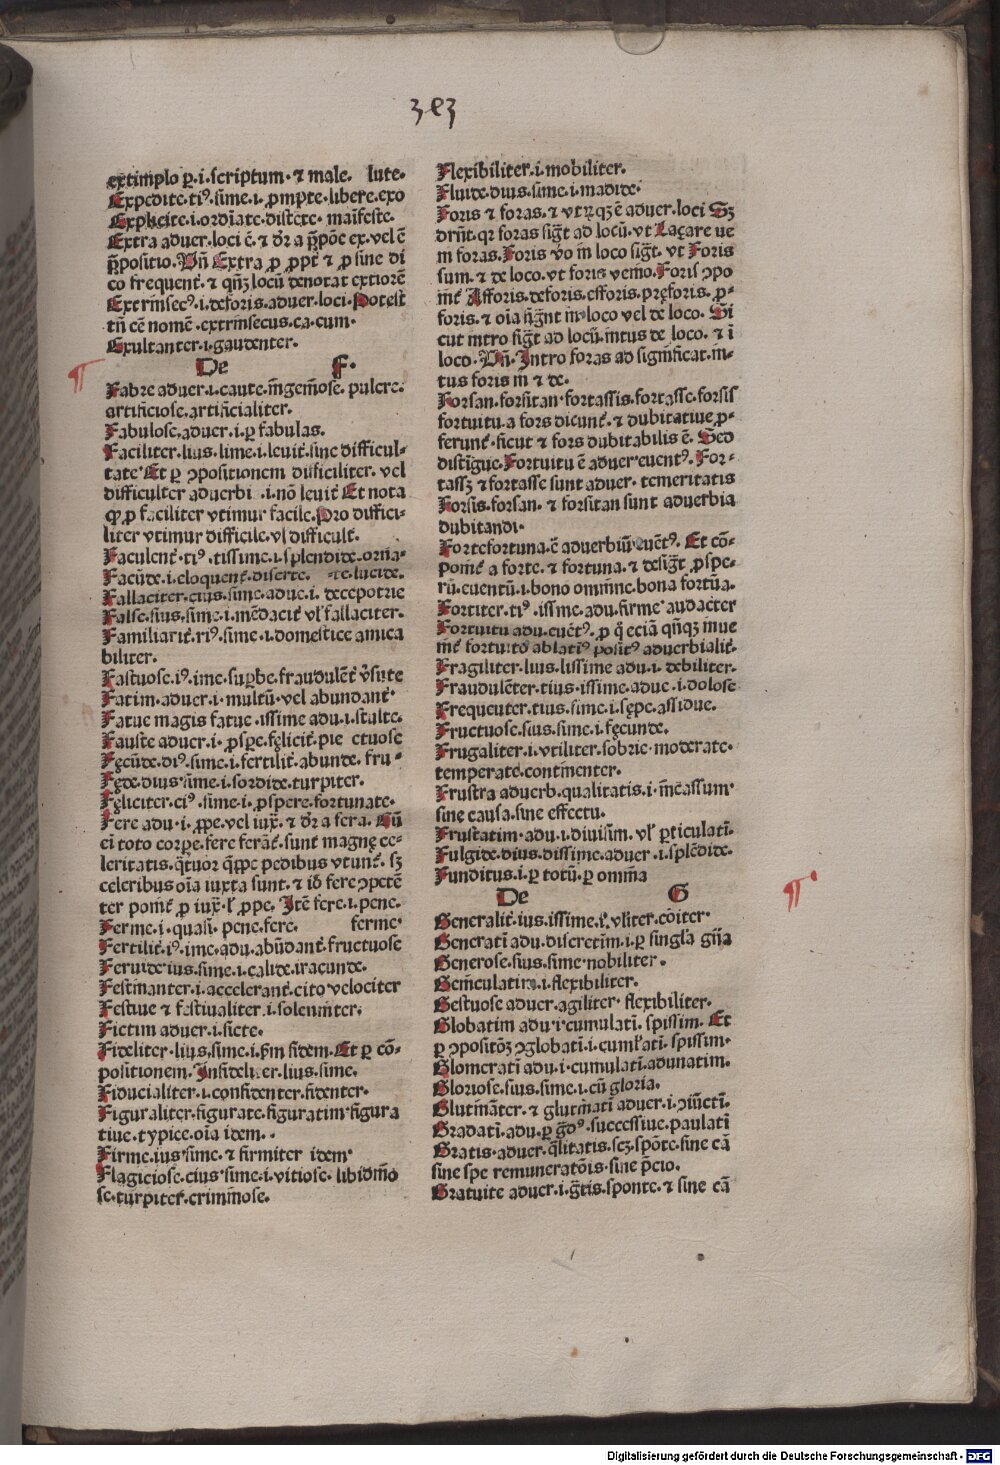 3e3
extimplo ꝑ.i.scriptum. ⁊ male. lute.
Expedite.tiꝰ.sīme.i.ꝓmpte.libere.exo
Explicite.i.ordīate.distete. maīfeste.
Extra aduer.loci ē. ⁊ dr̄ a p̄pōe ex.vel ē
p̄positio.Vn̄ Extra ꝓ ꝓpt̄ ⁊ ꝓ sine di
co frequent̄. ⁊ qn̄ꝫ locū denotat extiorē
Extrinsecꝰ.i.deforis.aduer.loci.Potest
tn̄ cē nomē.extrinsecus.ca.cum.
Exultanter.i.gaudenter.
De F.
Fabre aduer.i.caute.īngeniose. pulcre.
artificiose.artificialiter.
Fabulose.aduer.i.ꝑ fabulas.
Faciliter.lius.lime.i.leuit̄.sine difficul-
tate Et ꝑ ɔpositionem difficiliter. vel
difficulter aduerbi .i.nō leuit̄ Et nota
ꝙ ꝓ faciliter vtimur facile.Pro diffici-
liter vtimur difficile.vl difficult̄.
Faculent̄.tiꝰ.tissime.i.splendide.orna-
Facūde.i.eloquent̄.diserte. te.lucide.
Fallaciter.cius.sime.adue.i. deceptorie
False.sius.sime.i.mēdacit̄ vl fallaciter.
Familiarit̄.riꝰ.sime.i.domestice amica
biliter.
Fastuose.iꝰ.ime.suꝑbe.fraudulēt̄ v̄sute
Fatim.aduer.i.multū.vel abundant̄.
Fatue magis fatue.issime adu.i.stulte.
Fauste aduer.i.ꝓspe.fęlicit̄.pie ctuose
Fęcūde.diꝰ.sime.i.fertilit̄.abunde. fru-
Fęde.dius.sīme.i.sordide.turpiter.
Fęliciter.ciꝰ.sime.i.ꝓspere.fortunate.
Fere adu.i.ꝓpe.vel iux̄. ⁊ dr̄ a fera. Cū
ei toto corꝑe.fere ferāt̄.sunt magnę ce-
leritatis.q̄tuor q̄ppe pedibus vtunt̄. sꝫ
celeribus oīa iuxta sunt. ⁊ iō fere ɔpetē
ter ponit̄ ꝓ iux̄.l ꝓpe. Itē fere.i.pene.
Ferme.i.quasi.pene.fere. ferme.
Fertilit̄.iꝰ.ime.adu.abūdant̄.fructuose
Feruide ius.sime.i.calide.iracunde.
Festinanter.i.accelerant̄.cito velociter
Festiue ⁊ festiualiter.i.solenniter.
Fictim aduer.i.ficte.
Fideliter.lius.sime.i.ẜm fidem.Et ꝑ cō-
positionem.Infideliter.lius.sime.
Fiducialiter.i.confidenter.fidenter.
Figuraliter.figurate.figuratim figura
tiue.typice.oīa idem..
Firme.ius sīme. ⁊ firmiter idem
Flagiciose.cius sime.i.vitiose. libidīno
se.turpiter.criminose.
Flexibiliter.i.mobiliter.
Fluide.dius.sīme.i.madide.
Foris ⁊ foras. ⁊ vtrūqꝫ ē aduer.loci Sꝫ
drn̄t.qr foras sigt̄ ad locū.vt Laçare ue
ni foras.Foris v̄o in loco sigt̄. vt Foris
sum. ⁊ de loco.vt foris venio.Foris ɔpo
nit̄ Afforis.deforis.efforis.pręforis. ꝓ-
foris. ⁊ oīa sign̄t in loco vel de loco. Si
cut intro sigt̄ ad locū.intus de loco. ⁊ ī
loco.Vn̄.Intro foras ad significat.in-
tus foris in ⁊ de.
Forsan.forsitan.fortassis.fortasse.forsis
fortuitu.a fors dicunt̄. ⁊ dubitatiue ꝓ-
ferunt̄.sicut ⁊ fors dubitabilis ē. Sed
distīgue.Fortuitu ē aduer.euentꝰ. For-
tassꝫ ⁊ fortasse sunt aduer. temeritatis
Forsis.forsan. ⁊ forsitan sunt aduerbia
dubitandi.
Fortefortuna.ē aduerbiū euētꝰ. Et cō-
ponit̄ a forte. ⁊ fortuna. ⁊ desigt̄ ꝓspe-
rū.euentū.i.bono omine.bona fortūa.
Fortiter.tiꝰ.issime.adu.firme audacter
Fortuitu adu.euētꝰ.ꝓ q̄ eciā qn̄qꝫ inue
nit̄ fortuito ablatiꝰ positꝰ aduerbialit̄.
Fragiliter.lius.lissime adu.i.debiliter.
Fraudulēter.tius.issime.adue.i.dolose
Frequenter.tius.sime.i.sępe.assidue.
Fructuose.sius.sime.i.fęcunde.
Frugaliter.i.vtiliter.sobrie.moderate.
temperate.continenter.
Frustra aduerb.qualitatis.i.incassum
sine causa.sine effectu.
Frustatim.adu.i.diuisim. vl ꝑticulatī.
Fulgide.dius.dissime.aduer.i.splēdide.
Funditus.i.ꝑ totū.ꝑ omnia
De G
Generalit̄.ius.issime.i.vliter.cōiter.
Generatī adu.discretim.i.ꝑ singla gn̄a
Generose.sius.sime.nobiliter.
Geniculatim.i.flexibiliter.
Gestuose aduer.agiliter.flexibiliter.
Globatim adu.i.cumulatī. spissim. Et
ꝑ ɔpositōꝫ ɔglobatī.i.cumlatī.spissim.
Glomeratī adu.i.cumulatī.adunatim.
Gloriose.sius.sime.i.cū gloria.
Glutināter. ⁊ glutinatī aduer.i.ɔiūctī.
Gradatī.adu.ꝑ gdꝰ.successiue.paulatī
Gratis.aduer.qlitatis.scꝫ.spōte.sine cā
sine spe remuneratōis.sine p̄cio.
Gratuite aduer.i.gtis.sponte. ⁊ sine cā
Digitalisierung gefördert durch die Deutsche Forschungsgemeinschaft - DFG